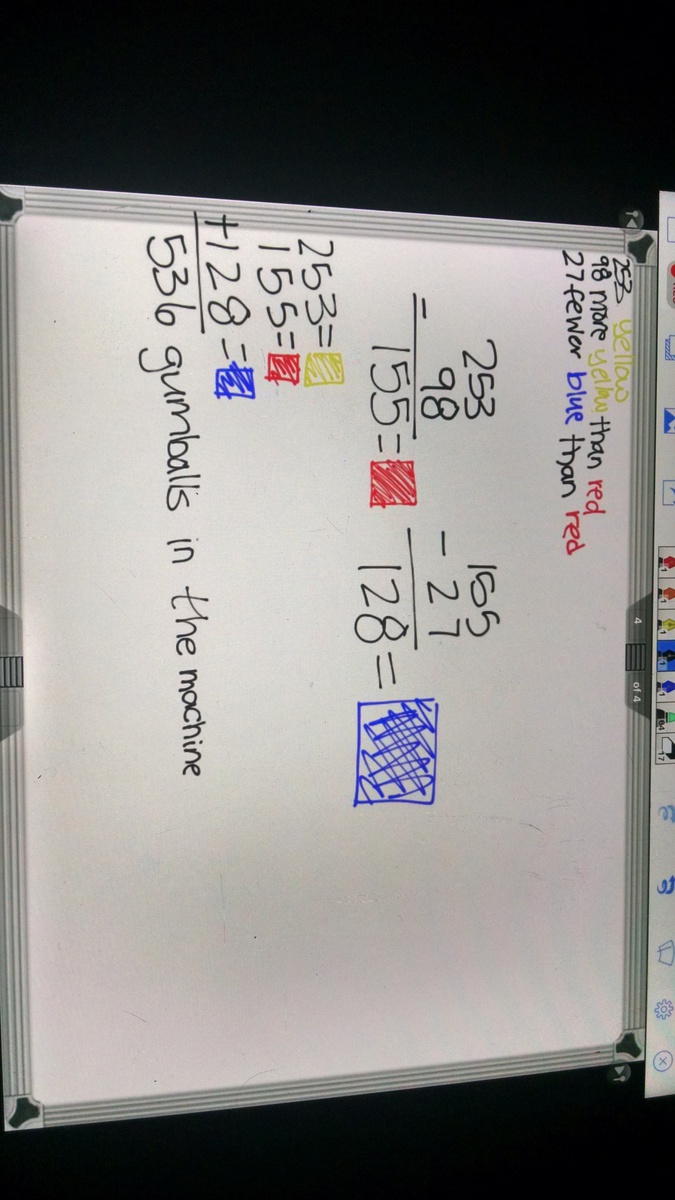 253 yellow
98 more yellow than red
27 fewer blue than red
253
98
-
155=
155
- 27
128=
253=
155=
+128=
536 gumballs in the machine
4 of 4